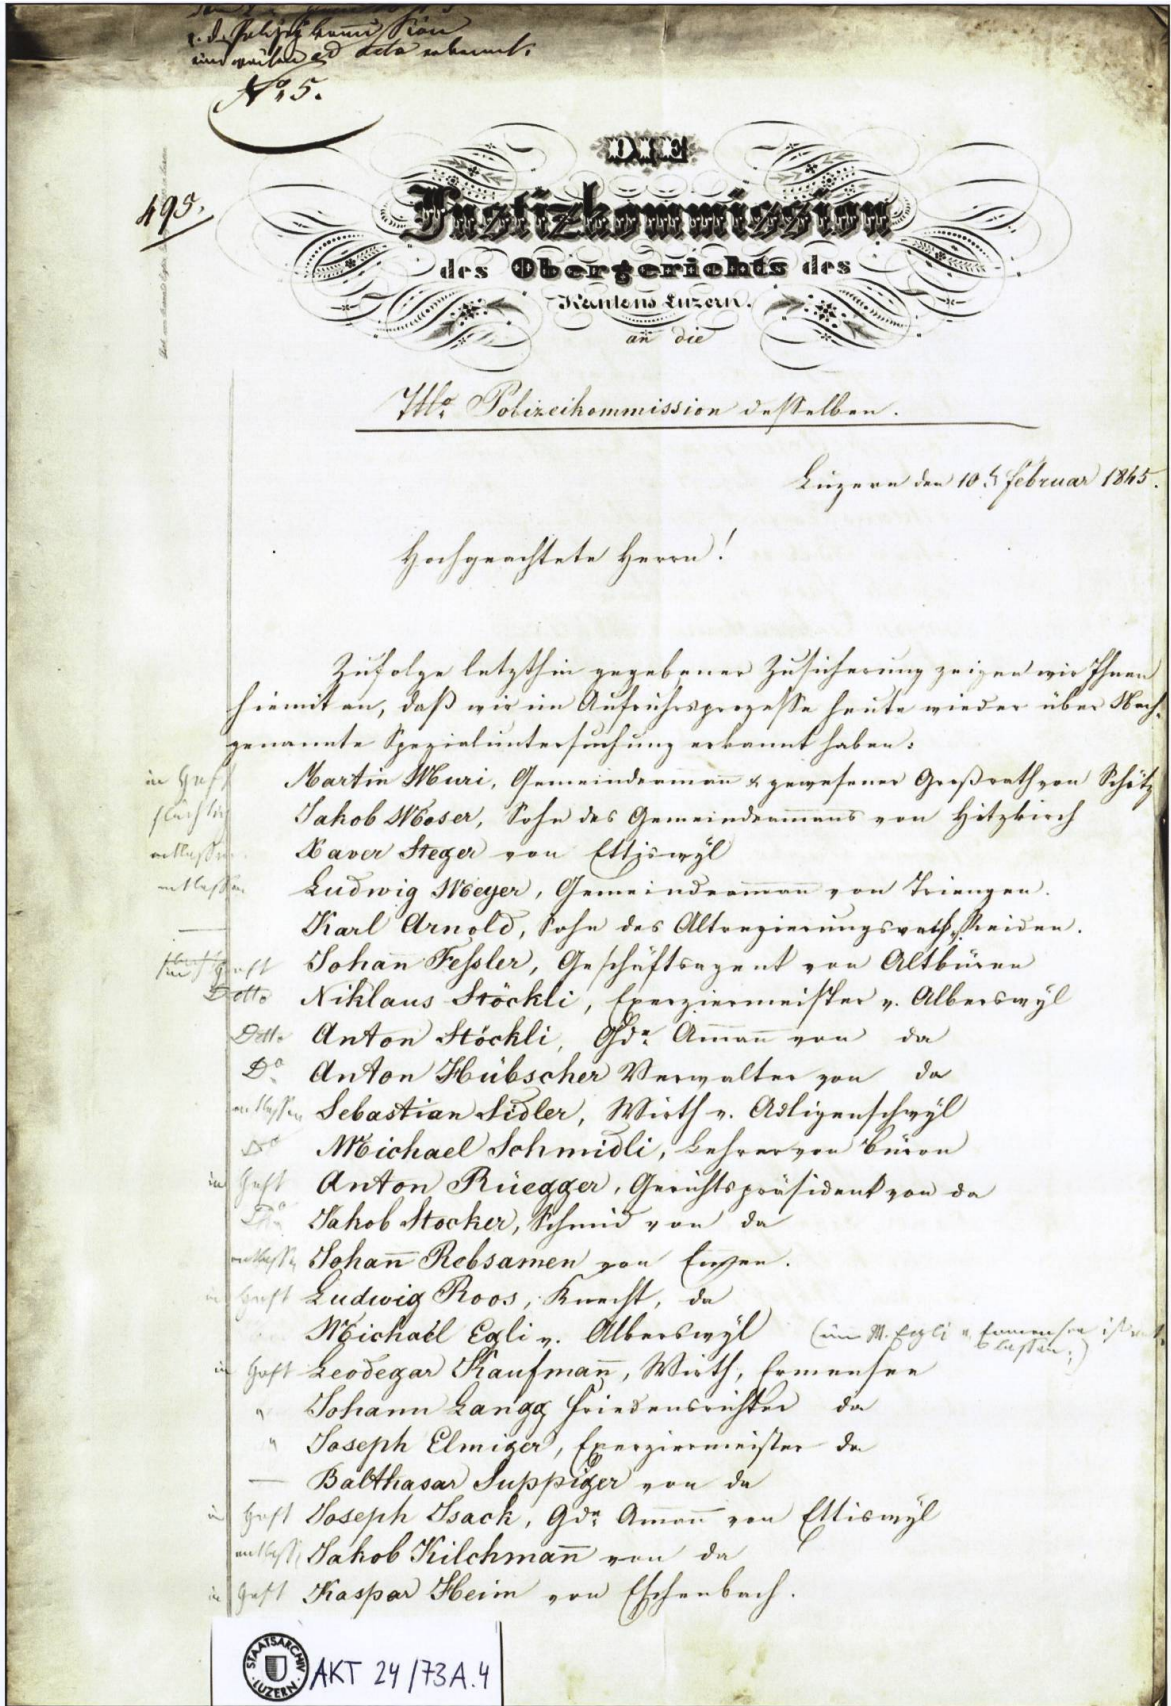 z. d. Polizeikommission
einzuweisen ad acta erkennt.
No. 5.
495.
DIE
Justizkommission
des Obergerichts des
Kantons Luzern.
an die
Tit. Polizeikommission desselben.
Luzern den 10t. Februar 1845.
Hochgeachtete Herrn!
Zufolge letzthin gegebener Zusicherung zeigen wir Ihnen
hiemit an, daß wir im Aufruhrsprozesse heute wieder über Nach-
genannte Spezialuntersuchung erkannt haben:
in Haft Martin Muri, Gemeindeammann & gewesener Großrath von Schötz
flüchtig Jakob Moser, Sohn des Gemeindeammans von Hitzkirch
entlassen Xaver Steger von Ettiswÿl
entlassen Ludwig Meyer, Gemeindeammann von Triengen.
— Karl Arnold, Sohn des Altregierungsraths, Reiden.
in Haft Johann Fessler, Geschäftsagent von Altbüron
Detto Niklaus Stöckli, Exerziermeister v. Alberswÿl
Detto Anton Stöckli, Gde. Ammann von da
Do. Anton Hübscher Verwalter von da
entlassen Sebastian Sidler, Wirth v. Adligenschwÿl
Do Michael Schmidli, Lehrer von Büron
in Haft Anton Rüegger, Gerichtspräsident von da
Do. Jakob Stocker, Schmid von da
entlassen Johann Rebsamen von
in Haft Ludwig Roos, Knecht, da
Michael Egli v. Alberswÿl (ein M. Egli v. Ermensee ist ent-
lassen.)
in Haft Leodegar Kaufmann, Wirth, Ermensee
" Johann Langg Friedensrichter da
" Joseph Elmiger, Exerziermeister da
— Balthasar Suppiger von da
in Haft Joseph Isack, Gde. Ammann von Ettiswÿl
entlassen Jakob Kilchmann von da
in Haft Kaspar Heim von Eschenbach.
STAATSARCHIV LUZERN
AKT 24/73A.4